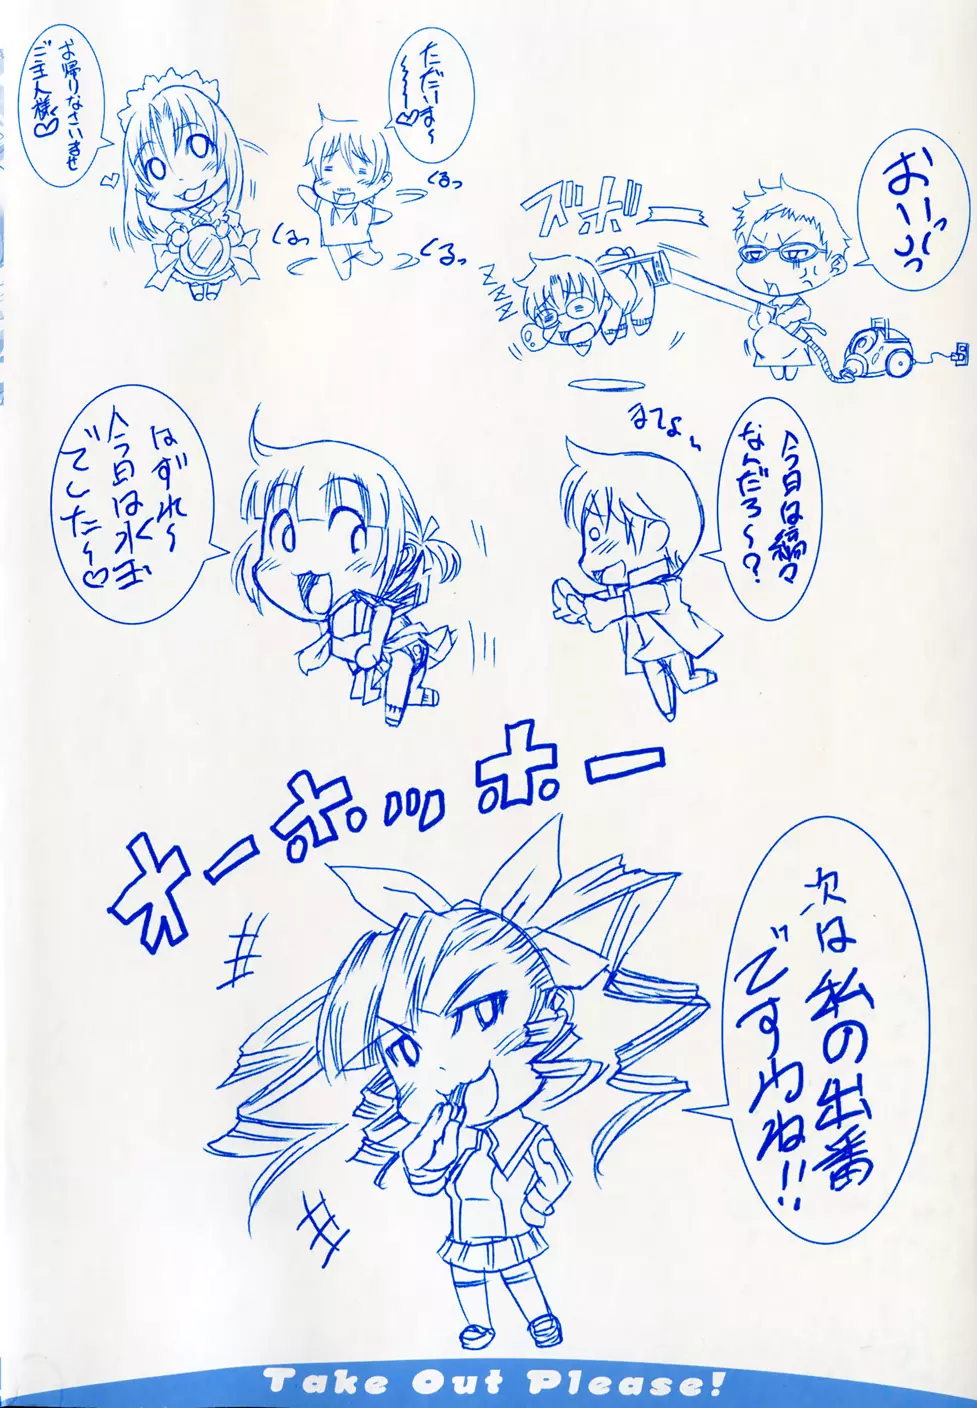 ただいま〜
〜〜〜♡
お帰りなさいませ
ご主人様♡
くるっ
くるっ
くるっ
おいっっ
ズボーー
ZZZZ
今日は縞々
なんだろ〜?
まてよぉ〜
はずれ〜
今日は水玉
でした〜♡
オーホッホー
次は私の出番
ですわね!!
Take Out Please!